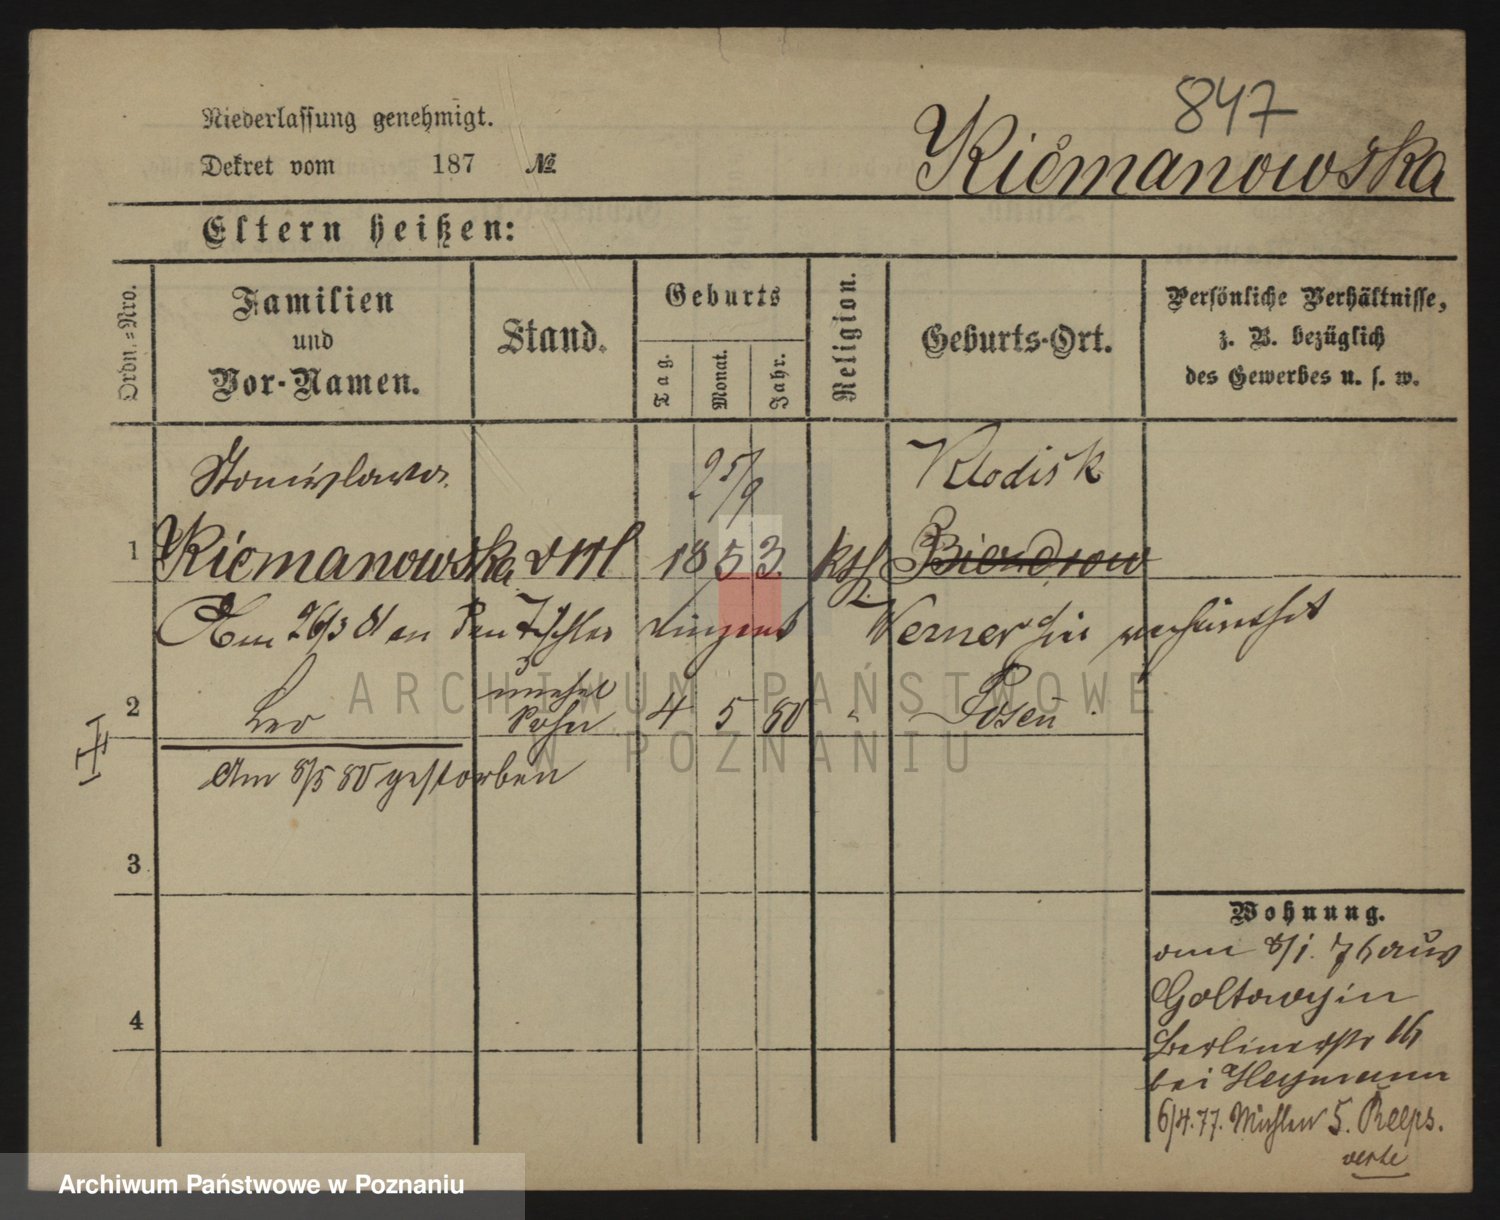 847
Niederlassung genehmigt.
Dekret vom 187 №
Kiémanowska
Eltern heißen:
Ordn.=Nro.
Familien
und
Vor-Namen.
Stand.
Geburts
Tag.
Monat.
Jahr.
Religion.
Geburts-Ort.
Persönliche Verhältnisse,
z. B. bezüglich
des Gewerbes u. s. w.
Stanislawa 25/9 Klodisk
1 Kiemanowska 1853 kth
Am 26/3 81 an den Tischler Werner verheirathet
2 Leo unehel Sohn 4 5 80 " Posen
Am 8/5 80 gestorben
3
4
Wohnung.
am 8/1. 76 aus
Berlinerstr 16
bei Heymann
6/4.77. Mühlen 5.
verte
ARCHIWUM PAŃSTWOWE
W POZNANIU
Archiwum Państwowe w Poznaniu